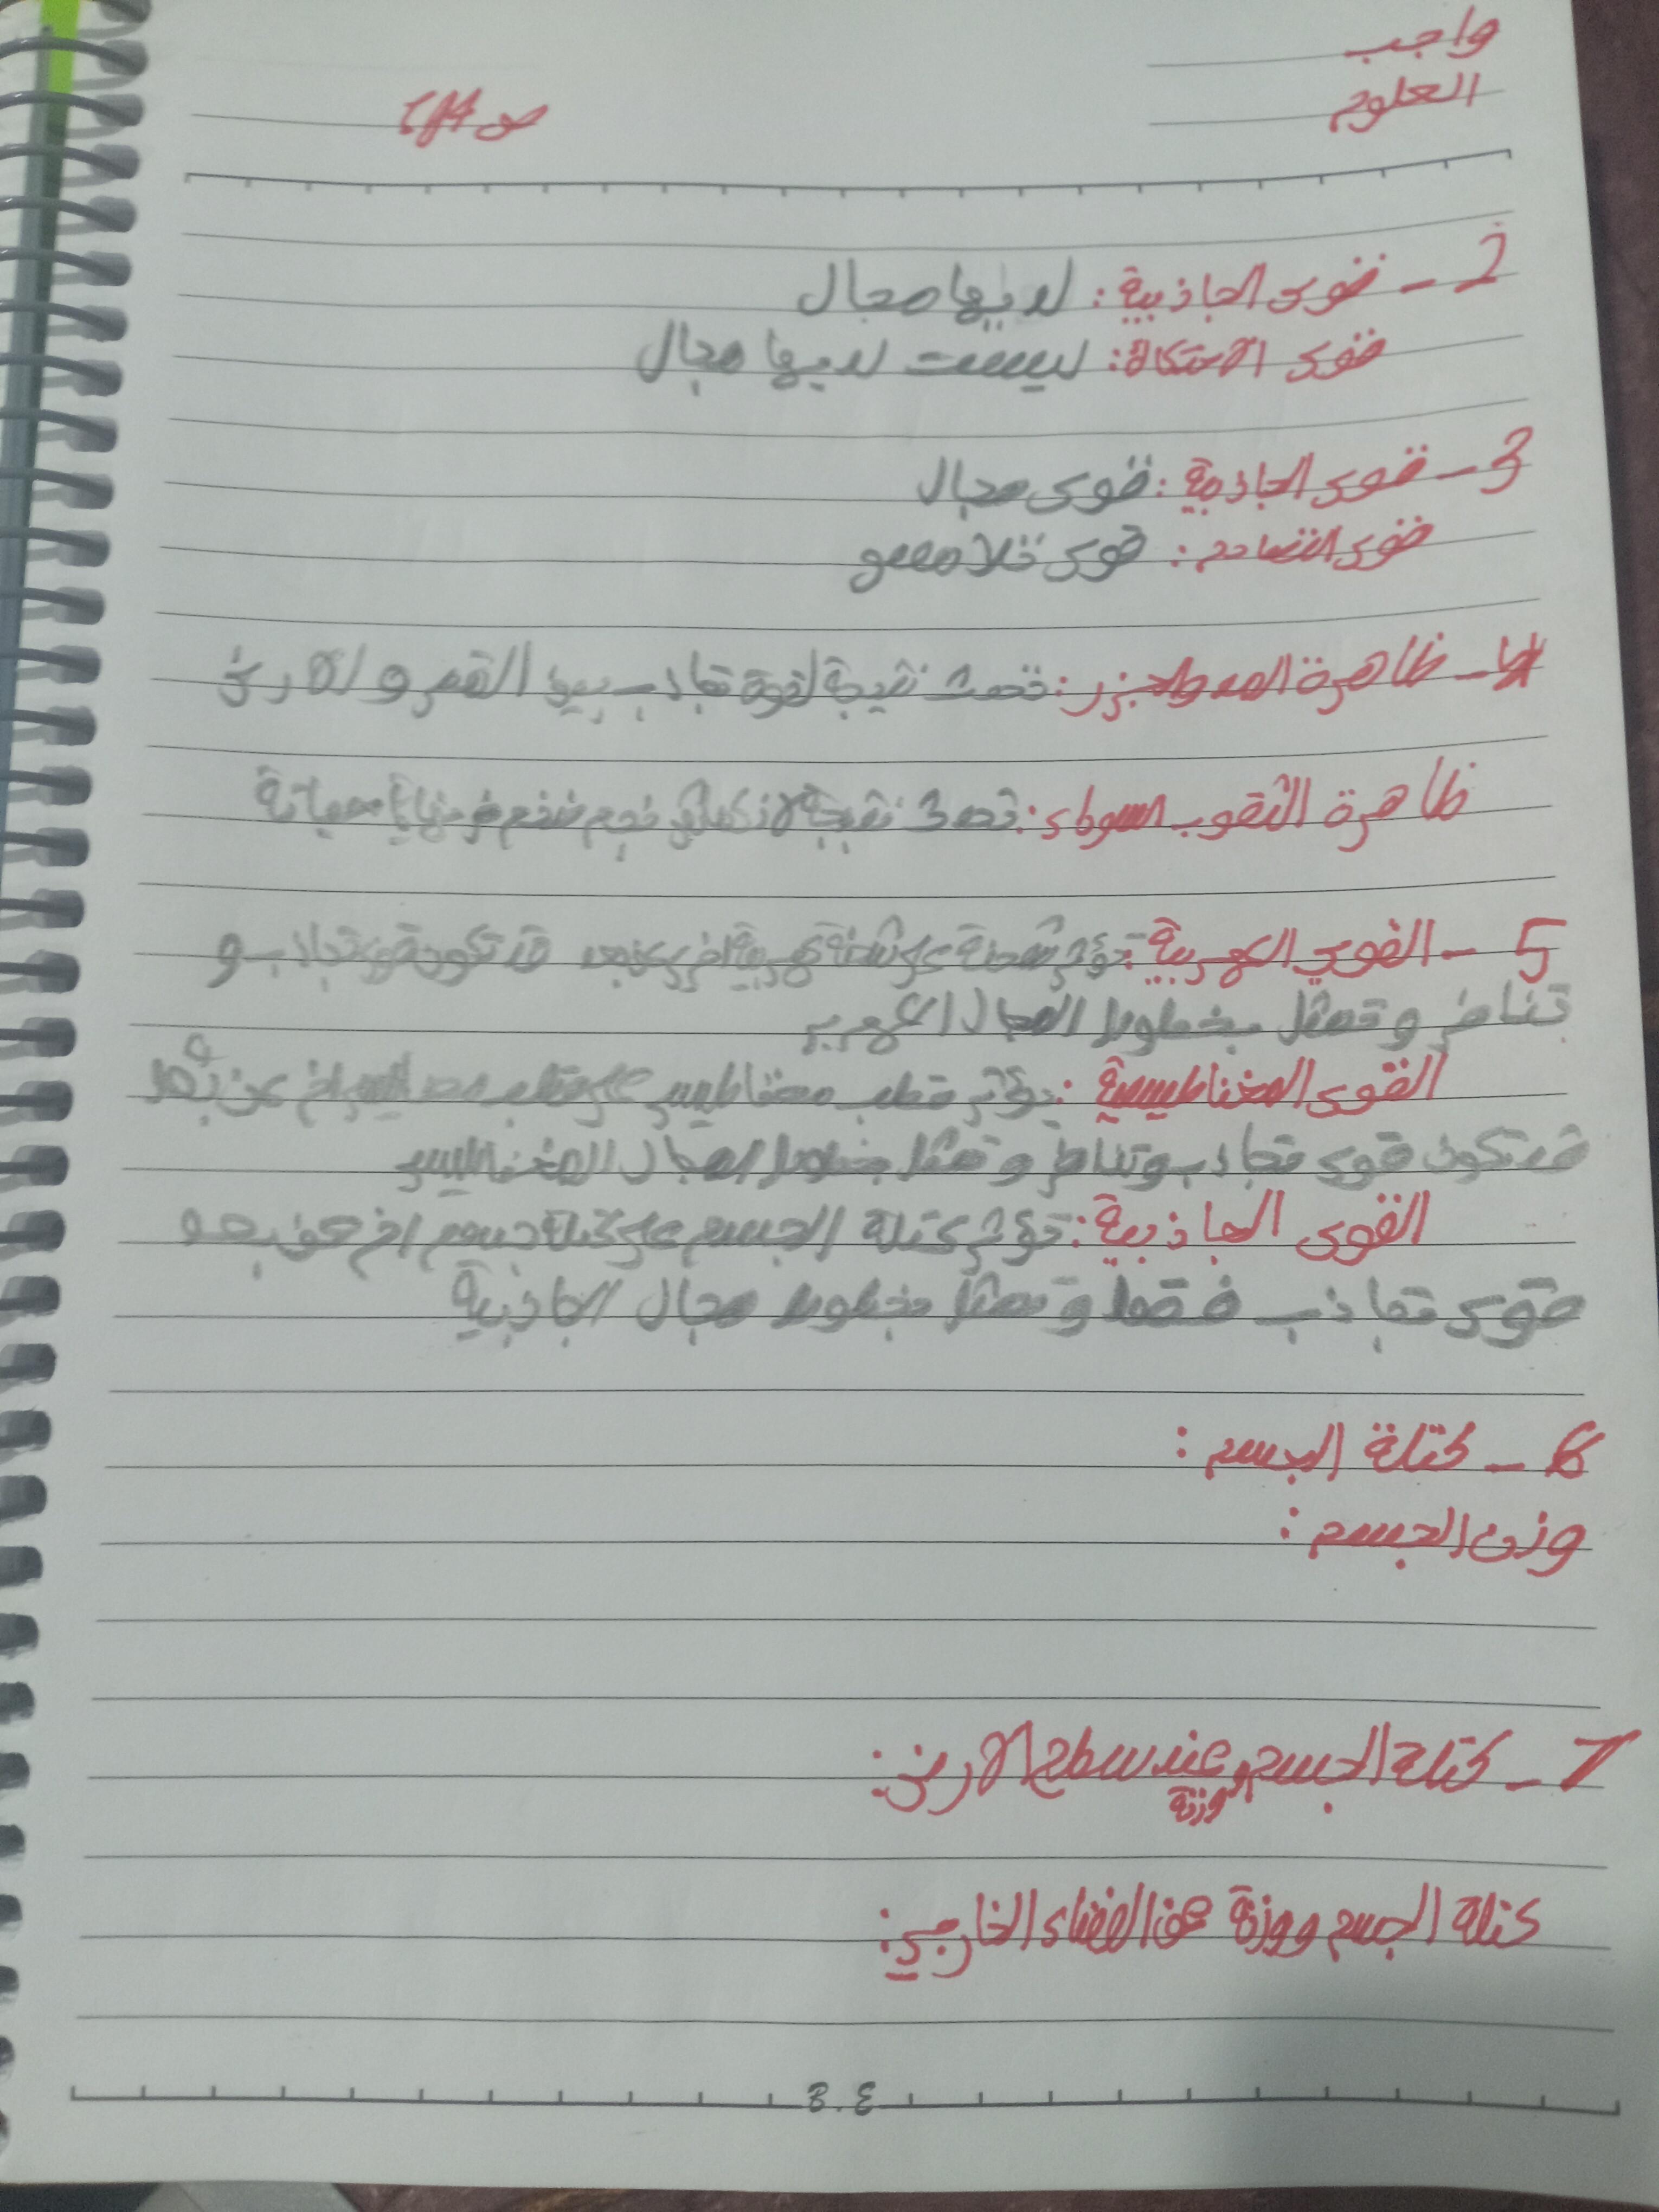 واجب
العلوم
ص
2 - قوى الجاذبية: لديها مجال
قوى الاحتكاك: ليست لديها مجال
3 - قوى الجاذبية: قوى مجال
قوى التصادم: قوى تلامس
4 - ظاهرة المد والجزر: تحدث نتيجة لقوة تجاذب بين القمر والارض
ظاهرة الثقوب السوداء: تحدث نتيجة نجم ضخم في نهاية حياتة
5 - القوى الكهربية: تؤثر شحنة على شحنة كهربية اخرى عن بعد قد تكون قوى تجاذب و
تنافر وتمثل بخطوط المجال الكهربي
القوى المغناطيسية: يؤثر قطب مغناطيسي على قطب مغناطيسي اخر عن بعد
قد تكون قوى تجاذب وتنافر وتمثل بخطوط المجال المغناطيسي
القوى الجاذبية: تؤثر كتلة الجسم على كتلة جسم اخر عن بعد
قوى تجاذب فقط وتمثل بخطوط مجال الجاذبية
6 - كتلة الجسم:
وزن الجسم:
7 - كتلة الجسم ووزنة عند سطح الارض:
كتلة الجسم ووزنة عن الفضاء الخارجي:
B.E